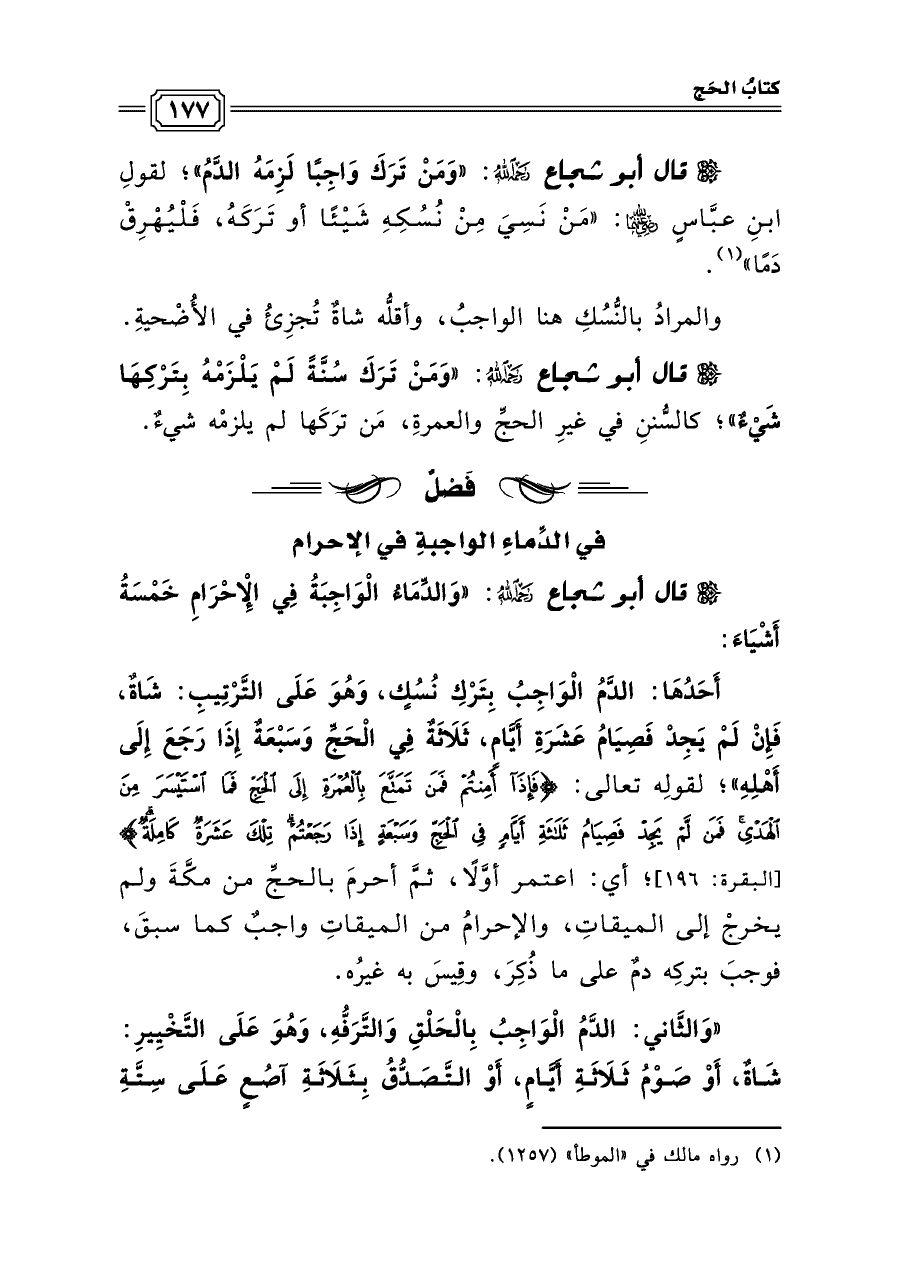 كتابُ الحَج
١٧٧
قال أبو شجاع رَحِمَهُ اللَّهُ: «وَمَنْ تَرَكَ وَاجِبًا لَزِمَهُ الدَّمُ»؛ لقولِ
ابنِ عبَّاسٍ رَضِيَ اللَّهُ عَنْهُمَا: «مَنْ نَسِيَ مِنْ نُسُكِهِ شَيْئًا أو تَرَكَهُ، فَلْيُهْرِقْ
دَمًا»(١).
والمرادُ بالنُّسُكِ هنا الواجبُ، وأقلُّه شاةٌ تُجزِئُ في الأُضْحيةِ.
قال أبو شجاع رَحِمَهُ اللَّهُ: «وَمَنْ تَرَكَ سُنَّةً لَمْ يَلْزَمْهُ بِتَرْكِهَا
شَيْءٌ»؛ كالسُّننِ في غيرِ الحجِّ والعمرةِ، مَن تركَها لم يلزمْه شيءٌ.
فَصْلٌ
في الدِّماءِ الواجبةِ في الإحرام
قال أبو شجاع رَحِمَهُ اللَّهُ: «وَالدِّمَاءُ الْوَاجِبَةُ فِي الْإِحْرَامِ خَمْسَةُ
أَشْيَاءَ:
أَحَدُهَا: الدَّمُ الْوَاجِبُ بِتَرْكِ نُسُكٍ، وَهُوَ عَلَى التَّرْتِيبِ: شَاةٌ،
فَإِنْ لَمْ يَجِدْ فَصِيَامُ عَشَرَةِ أَيَّامٍ، ثَلَاثَةٌ فِي الْحَجِّ وَسَبْعَةٌ إِذَا رَجَعَ إِلَى
أَهْلِهِ»؛ لقولِه تعالى: ﴿فَإِذَآ أَمِنتُمْ فَمَن تَمَتَّعَ بِٱلْعُمْرَةِ إِلَى ٱلْحَجِّ فَمَا ٱسْتَيْسَرَ مِنَ
ٱلْهَدْىِۚ فَمَن لَّمْ يَجِدْ فَصِيَامُ ثَلَٰثَةِ أَيَّامٍ فِى ٱلْحَجِّ وَسَبْعَةٍ إِذَا رَجَعْتُمْۗ تِلْكَ عَشَرَةٌ كَامِلَةٌۗ﴾
[البقرة: ١٩٦]؛ أي: اعتمر أوَّلًا، ثمَّ أحرمَ بالحجِّ من مكَّةَ ولم
يخرجْ إلى الميقاتِ، والإحرامُ من الميقاتِ واجبٌ كما سبقَ،
فوجبَ بتركِه دمٌ على ما ذُكِرَ، وقِيسَ به غيرُه.
«وَالثَّاني: الدَّمُ الْوَاجِبُ بِالْحَلْقِ وَالتَّرَفُّهِ، وَهُوَ عَلَى التَّخْيِيرِ:
شَاةٌ، أَوْ صَوْمُ ثَلَاثَةِ أَيَّامٍ، أَوْ التَّصَدُّقُ بِثَلَاثَةِ آصُعٍ عَلَى سِتَّةِ
(١) رواه مالك في «الموطأ» (١٢٥٧).